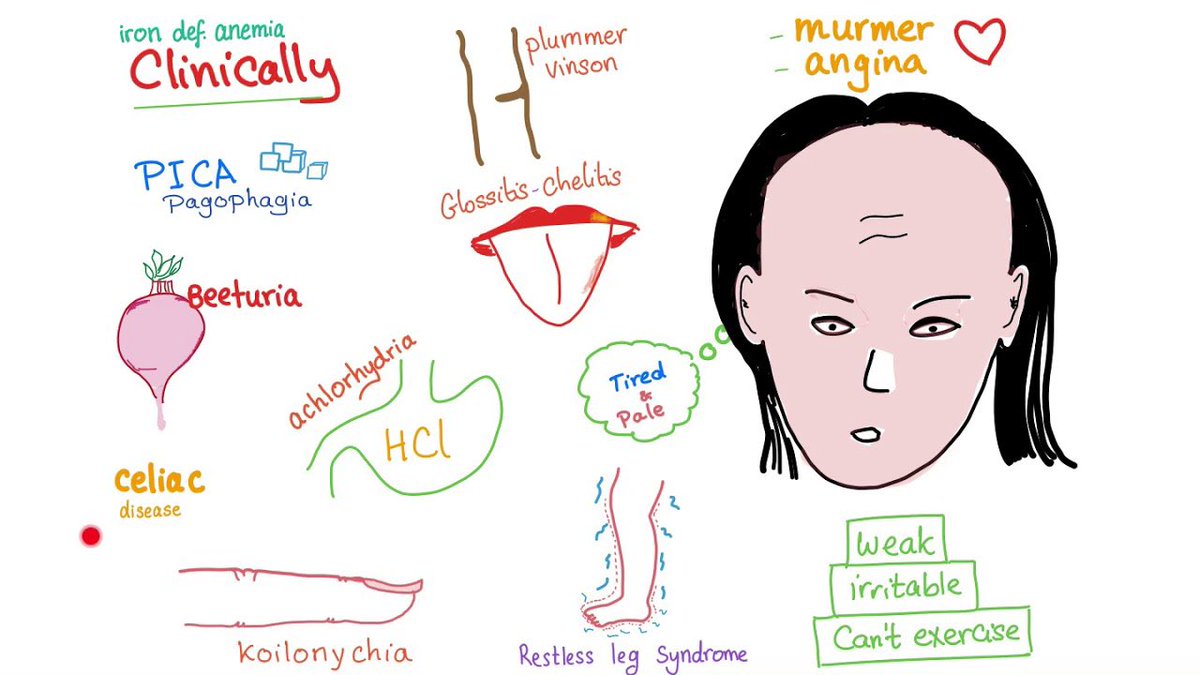 iron def. anemia
Clinically
PICA
Pagophagia
Beeturia
celiac
disease
plummer
vinson
Glossitis-chelitis
achlorhydria
HCl
Tired
&
Pale
- murmer
- angina
weak
irritable
Can't exercise
Koilonychia
Restless leg Syndrome